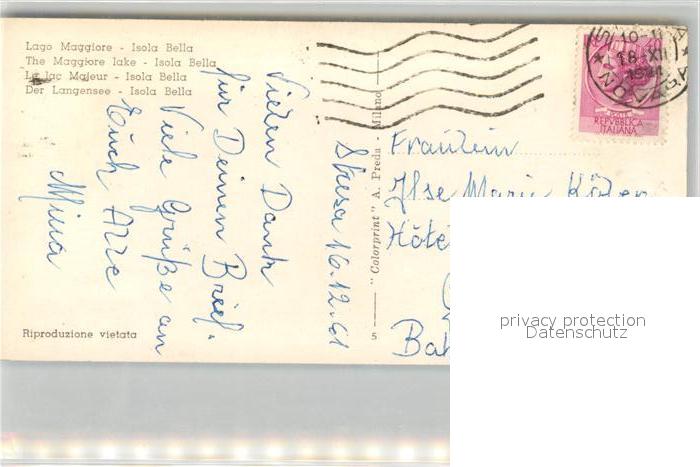 Lago Maggiore - Isola Bella
The Maggiore lake - Isola Bella
Le lac Majeur - Isola Bella
Der Langensee - Isola Bella
Stresa 16.12.61
Vielen Dank
für Deinen Brief.
Viele Grüße an
Euch Alle
Mina
Riproduzione vietata
5 "Colorprint" A. Preda - Milano
10-11
18·XII
REPVBBLICA
ITALIANA
Fräulein
Ilse Marie
Hote
Bah
privacy protection
Datenschutz